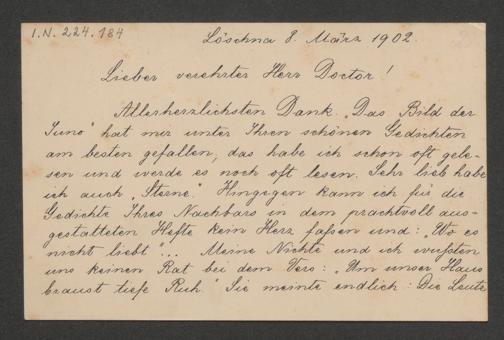 I.N. 224.184
Löschna 8. März 1902.
Lieber verehrter Herr Doctor!
Allerherzlichsten Dank. „Das Bild der
Juno“ hat mir unter Ihren schönen Gedichten
am besten gefallen, das habe ich schon oft gele-
sen und werde es noch oft lesen. Sehr lieb habe
ich auch „Sterne.“ Hingegen kann ich für die
Gedichte Ihres Nachbars in dem prachtvoll aus-
gestatteten Hefte kein Herz faßen und: „Wo es
nicht liebt“... Meine Nichte und ich wußten
uns keinen Rat bei dem Vers: „Um unser Haus
braust tiefe Ruh.“ Sie meinte endlich: Die Leute